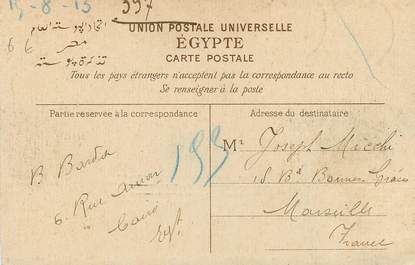 11-8-13
397
UNION POSTALE UNIVERSELLE
ÉGYPTE
CARTE POSTALE
Tous les pays étrangers n'acceptent pas la correspondance au recto
Se renseigner à la poste
مصر
Partie reservée à la correspondance
Adresse du destinataire
193
B. Barda
6. Rue
Caire
Egt.
Mr Joseph Micchi
18. Bd
Marseille
France